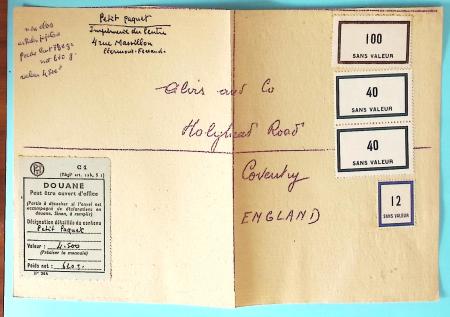 Petit Paquet
Imprimerie du Centre
4 rue Massillon
Clermont-Ferrand
valeur 4.500
Alvis and Co
Holyhead Road
Coventry
ENGLAND
100
SANS VALEUR
40
SANS VALEUR
40
SANS VALEUR
12
SANS VALEUR
C 1
DOUANE
Peut être ouvert d'office
(Partie à détacher si l'envoi est
accompagné de déclarations en
douane. Sinon, à remplir)
Désignation détaillée du contenu
Petit Paquet
Valeur : 4.500
(Préciser la monnaie)
Poids net : 640 g.